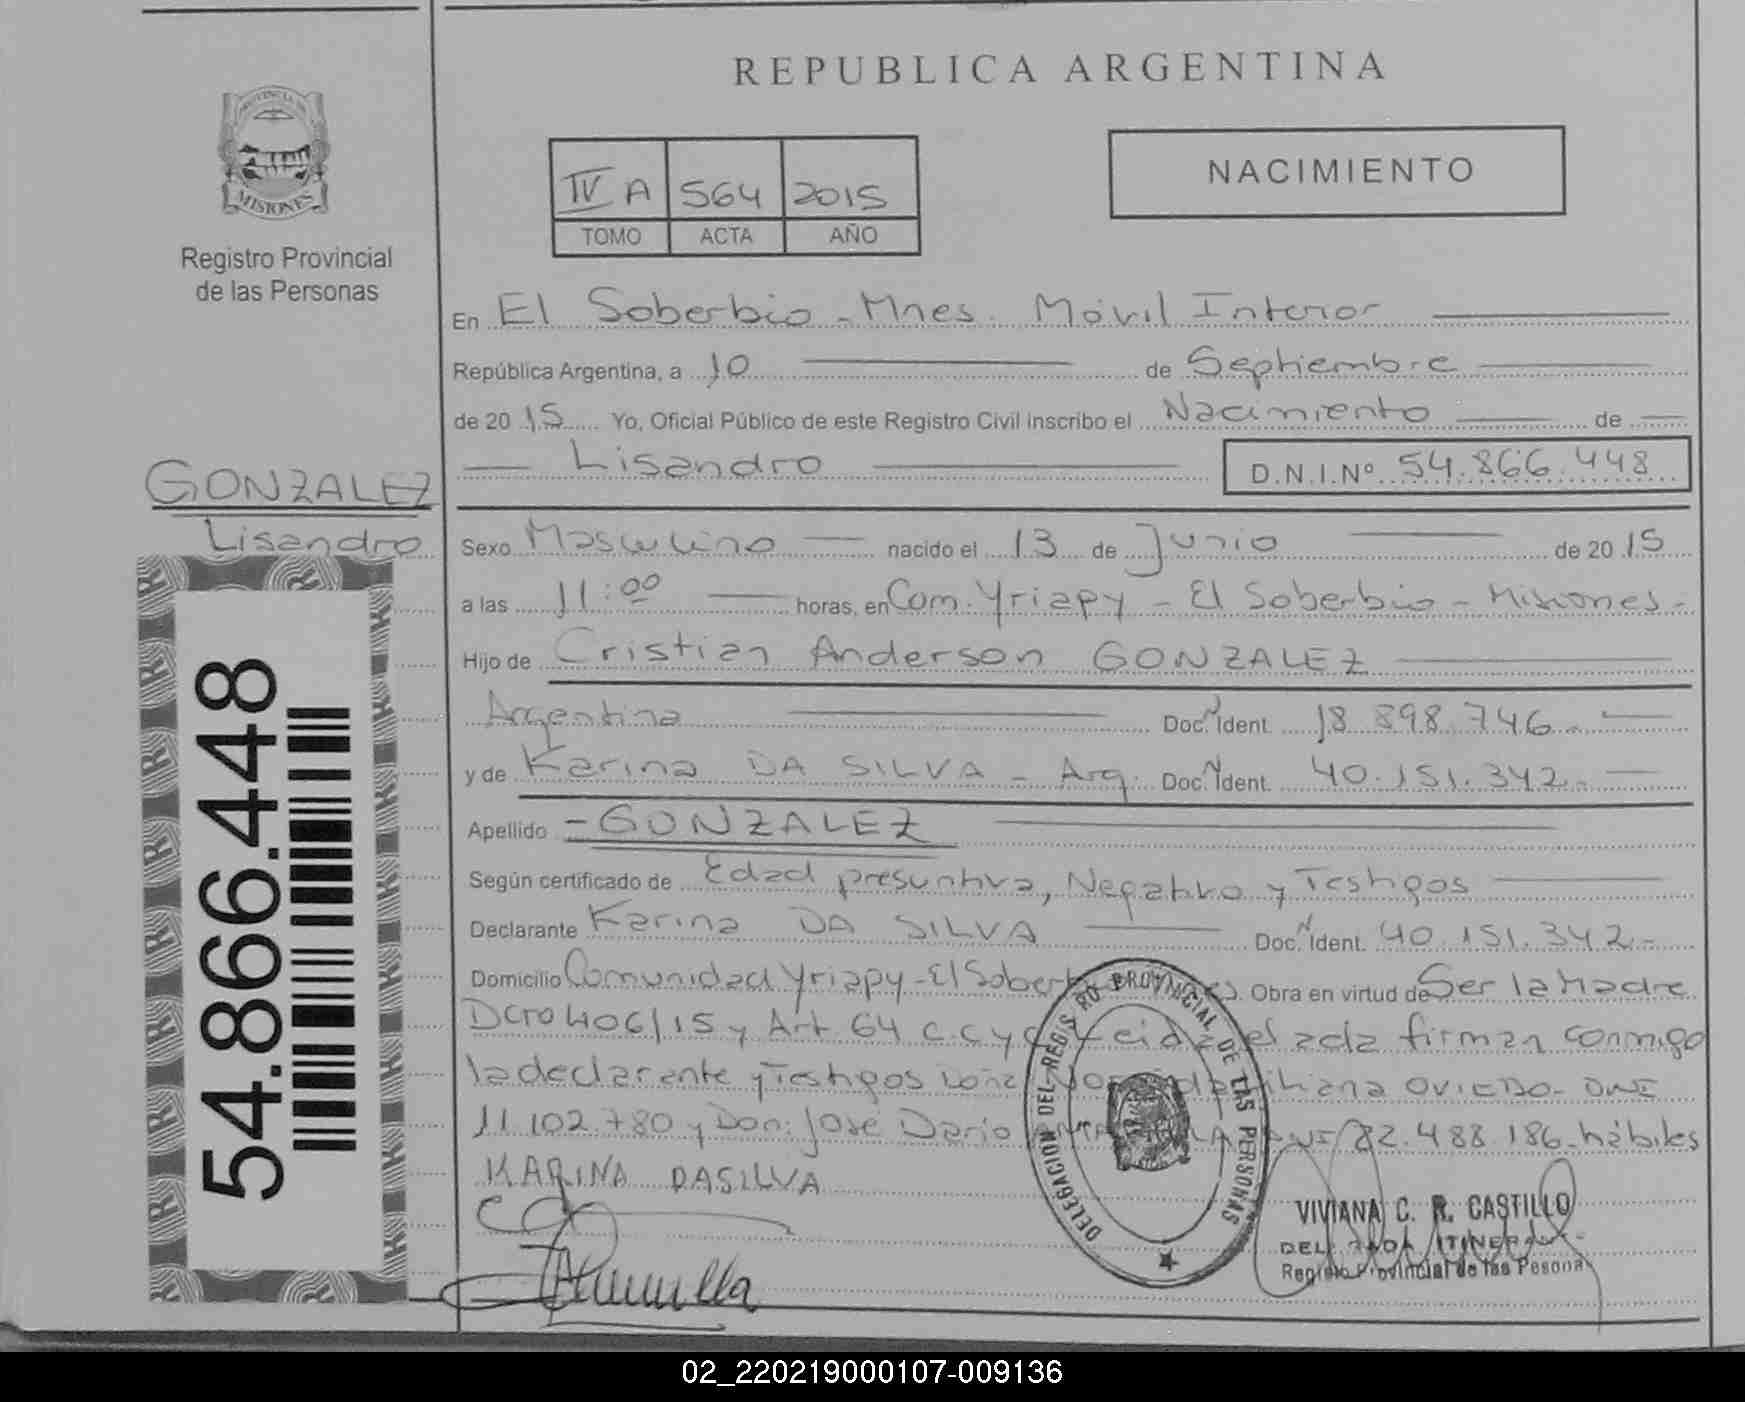 REPUBLICA ARGENTINA
PROVINCIA DE
MISIONES
Registro Provincial
de las Personas
IV A 564 2015
TOMO ACTA AÑO
NACIMIENTO
En El Soberbio - Mnes. Móvil Interior
República Argentina, a 10 de Septiembre
de 2015 Yo, Oficial Público de este Registro Civil inscribo el Nacimiento de
Lisandro D.N.I.Nº 54.866.448
GONZALEZ
Lisandro
54.866.448
Sexo Masculino nacido el 13 de Junio de 2015
a las 11:00 horas, en Com. Yriapy - El Soberbio - Misiones -
Hijo de Cristian Anderson GONZALEZ
Argentina Doc. Ident. 18.898.746.-
y de Karina DA SILVA - Arg. Doc. Ident. 40.151.342.-
Apellido - GONZALEZ
Según certificado de Edad presuntiva, Negativo y Testigos
Declarante Karina DA SILVA Doc. Ident. 40.151.342-
Domicilio Comunidad Yriapy - El Obra en virtud de Ser la Madre
Dcto 406/15 y Art. 64 C.C y acta firman conmigo
la declarante y Testigos Doña OVIEDO - DNI
11.102.780 y Don: José Dario 488.186 - hábiles
KARINA DASILVA
DELEGACION DEL REGISTRO PROVINCIAL DE LAS PERSONAS
VIVIANA C. R. CASTILLO
Registro Provincial de las
02_220219000107-009136